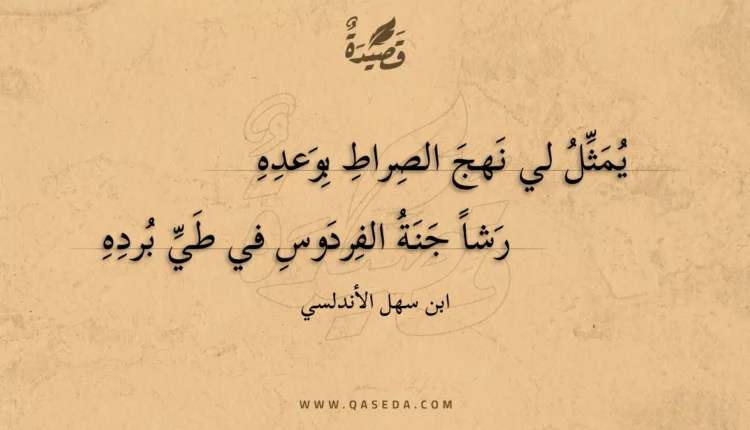 قَصِيْدَةٌ
يُمَثِّلُ لي نَهجَ الصِراطِ بِوَعدِهِ
رَشاً جَنَةُ الفِردَوسِ في طَيِّ بُردِهِ
ابن سهل الأندلسي
WWW.QASEDA.COM